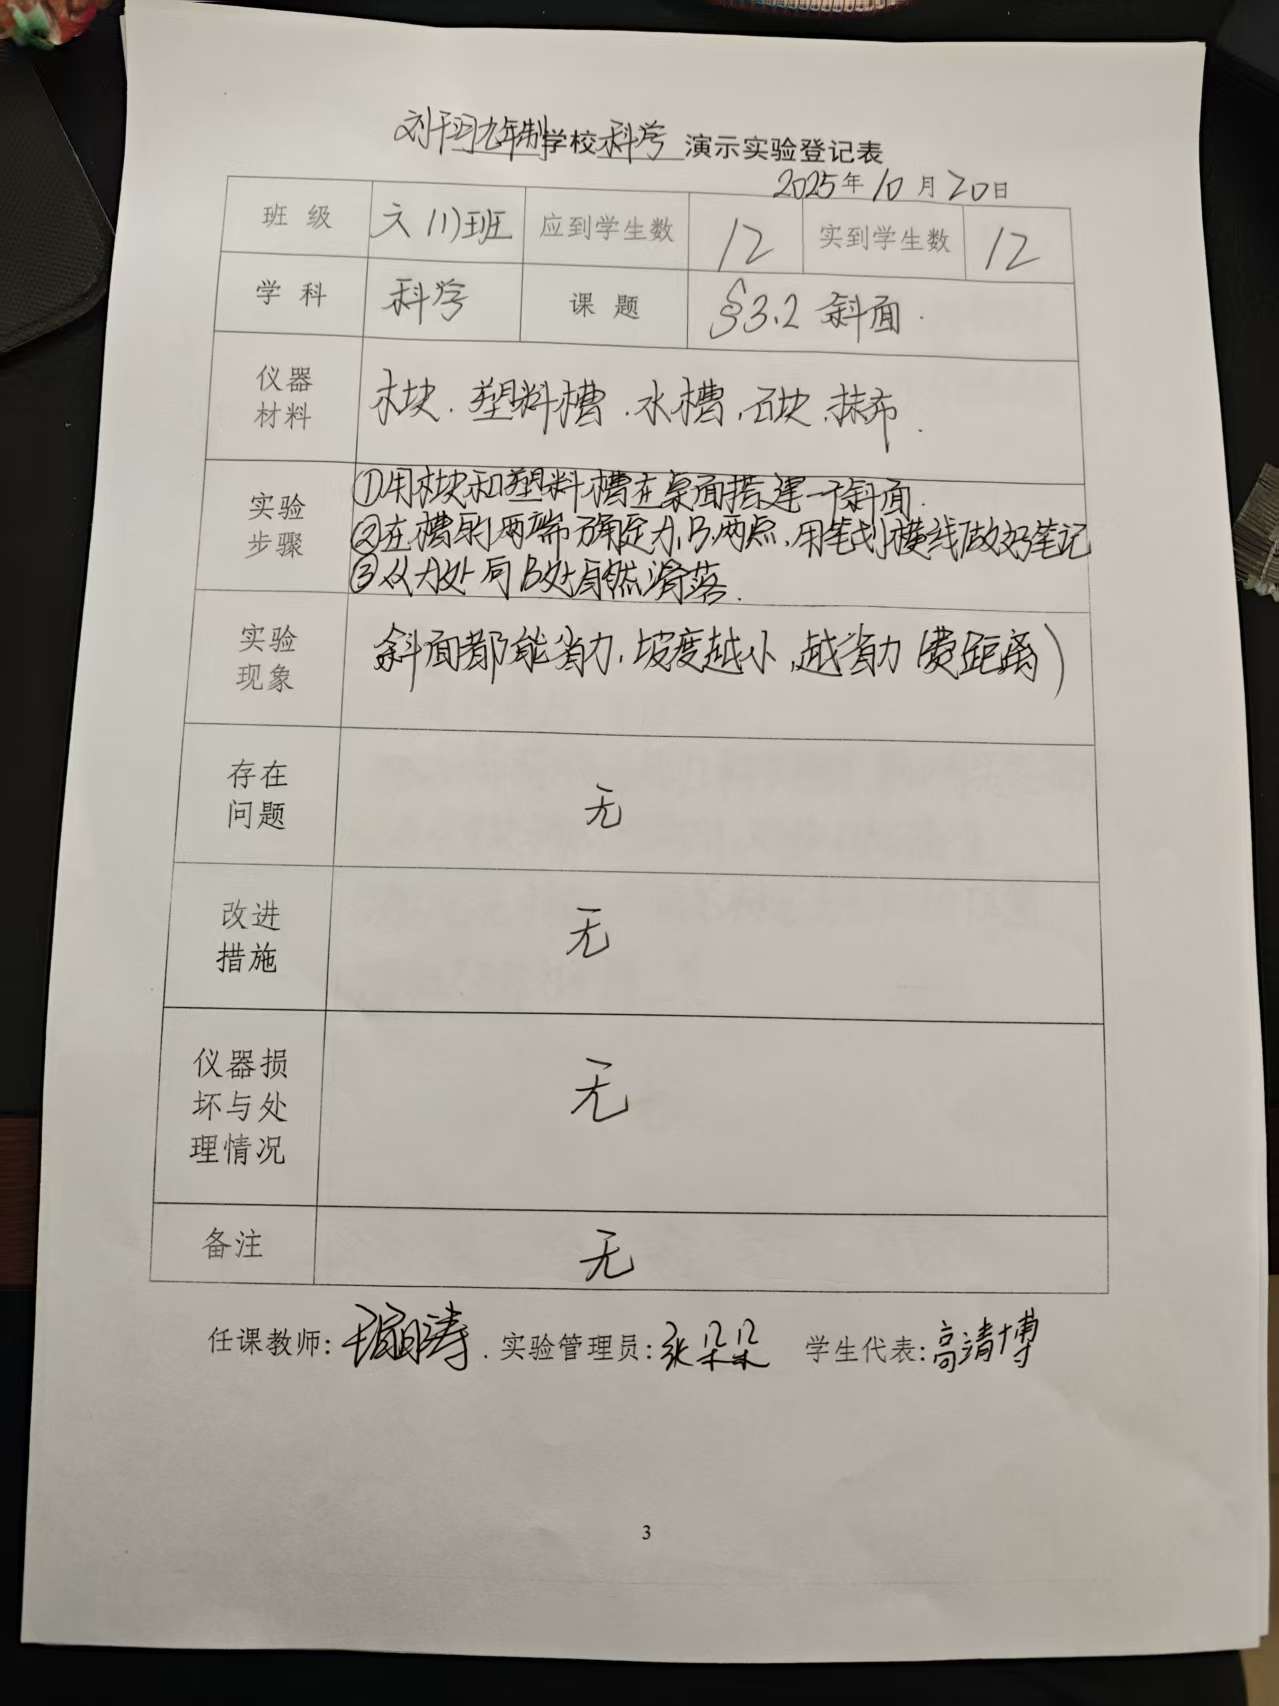 刘干沟九年制学校科学 演示实验登记表
2025年10月20日
班 级 六(1)班 应到学生数 12 实到学生数 12
学 科 科学 课 题 §3.2 斜面.
仪器
材料
木块、塑料槽、水槽、石块、抹布.
实验
步骤
①用木块和塑料槽在桌面搭建一个斜面.
②在槽的两端确定A、B两点,用笔划横线做好笔记
③从A处向B处自然滑落.
实验
现象
斜面都能省力,坡度越小,越省力(费距离)
存在
问题
无
改进
措施
无
仪器损
坏与处
理情况
无
备注
无
任课教师: 实验管理员:张朵朵 学生代表:高靖博
3